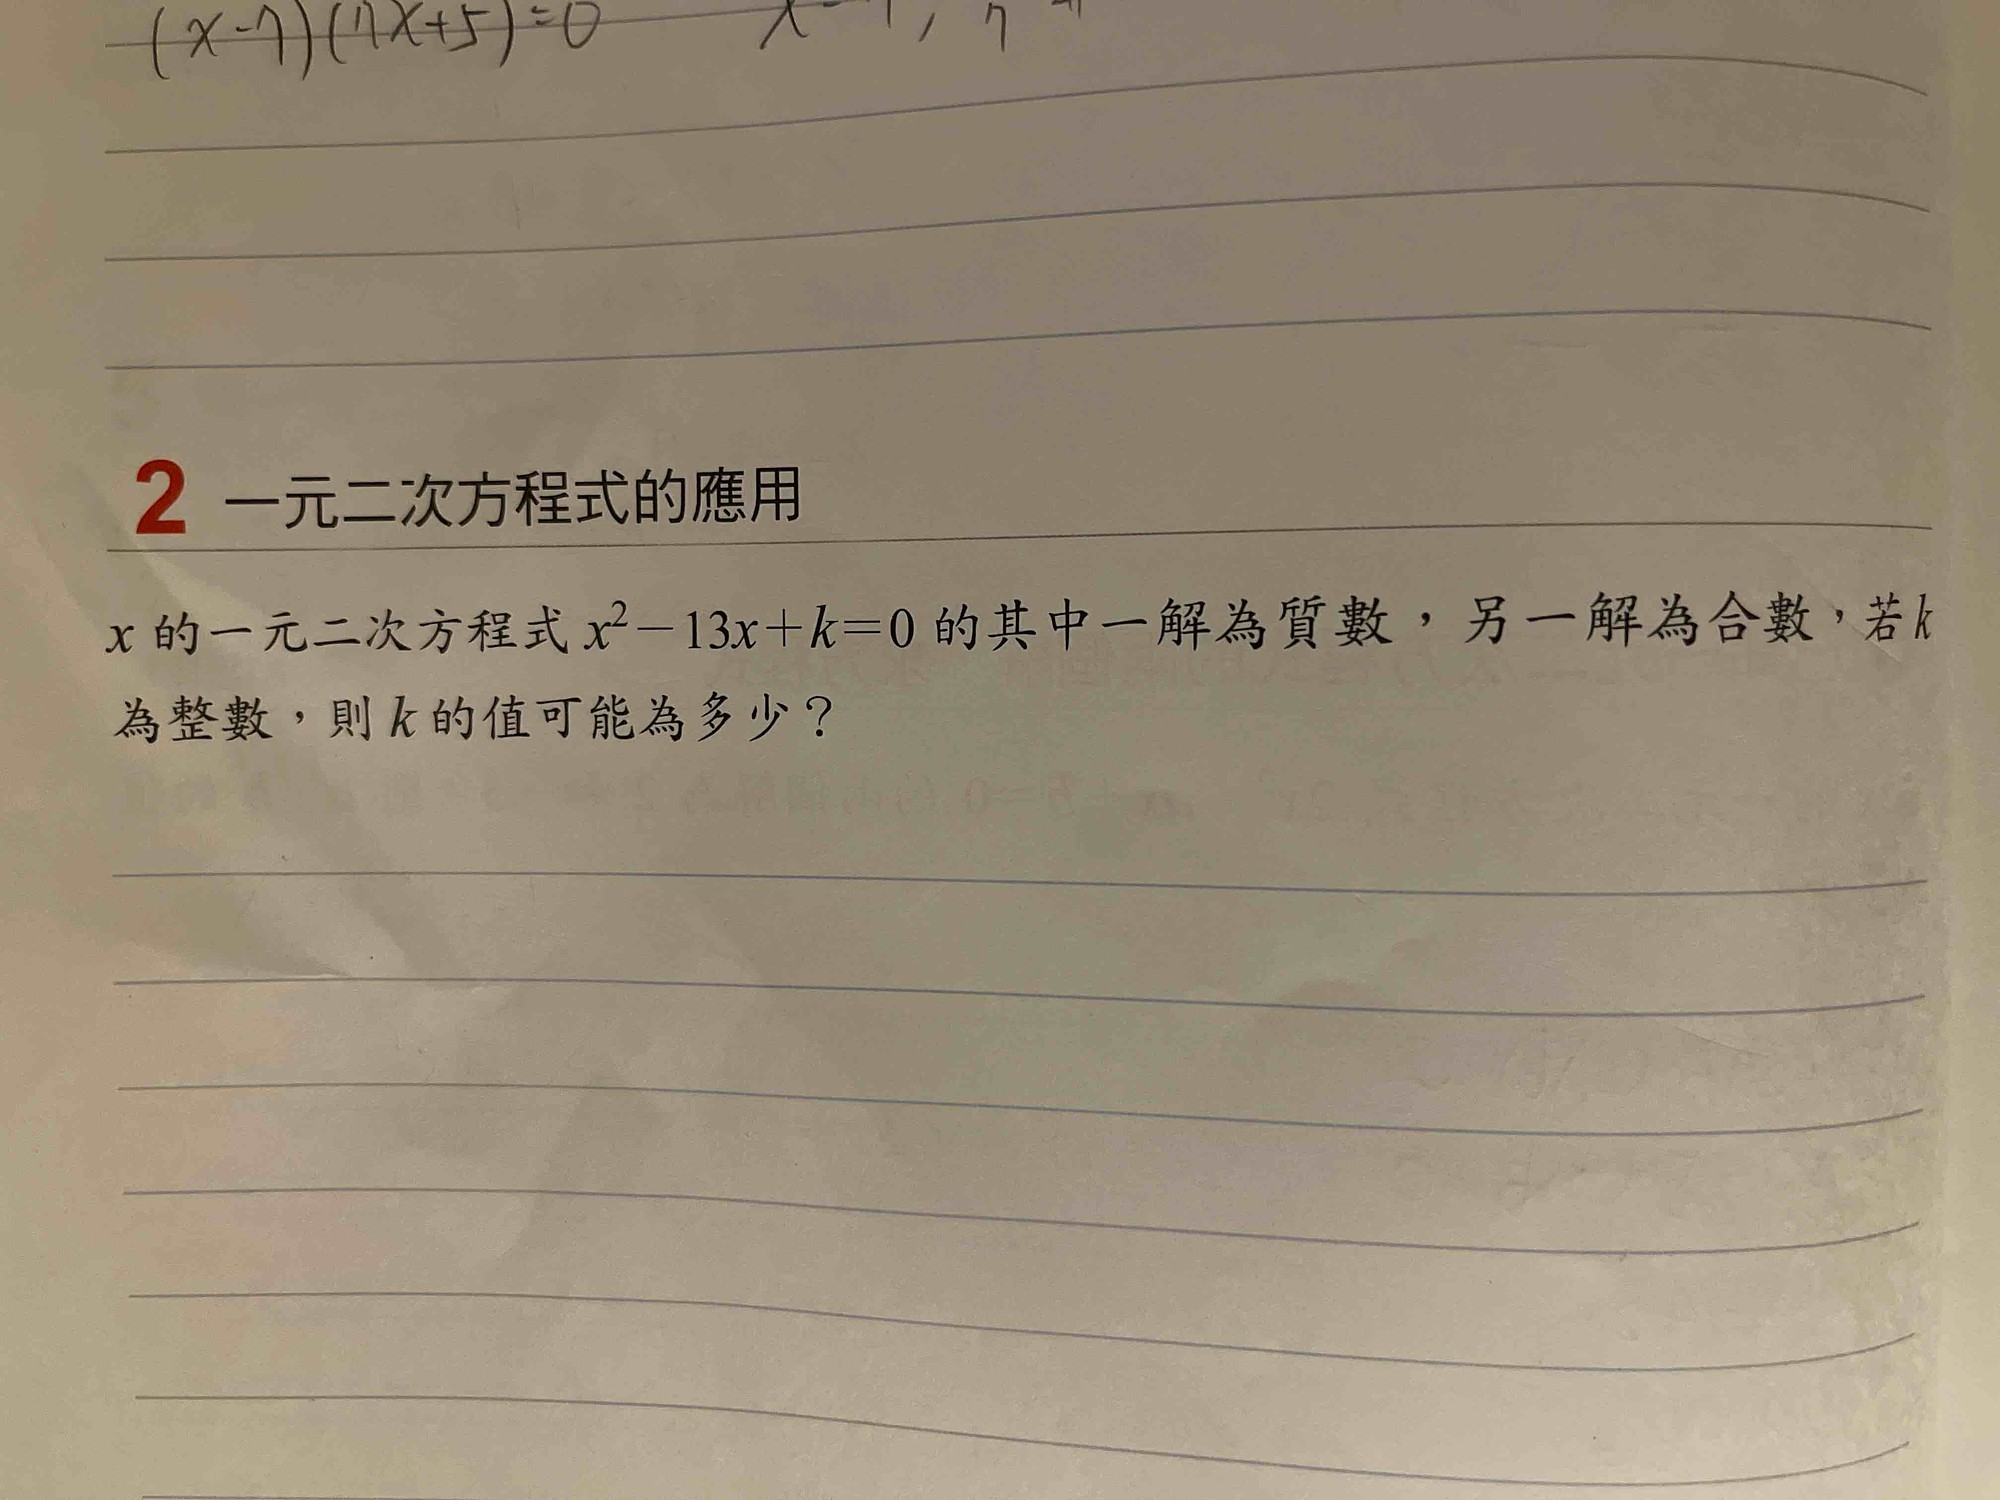 (x-7)(7x+5)=0
2 一元二次方程式的應用
x 的一元二次方程式 x²－13x＋k＝0 的其中一解為質數，另一解為合數，若 k
為整數，則 k 的值可能為多少？